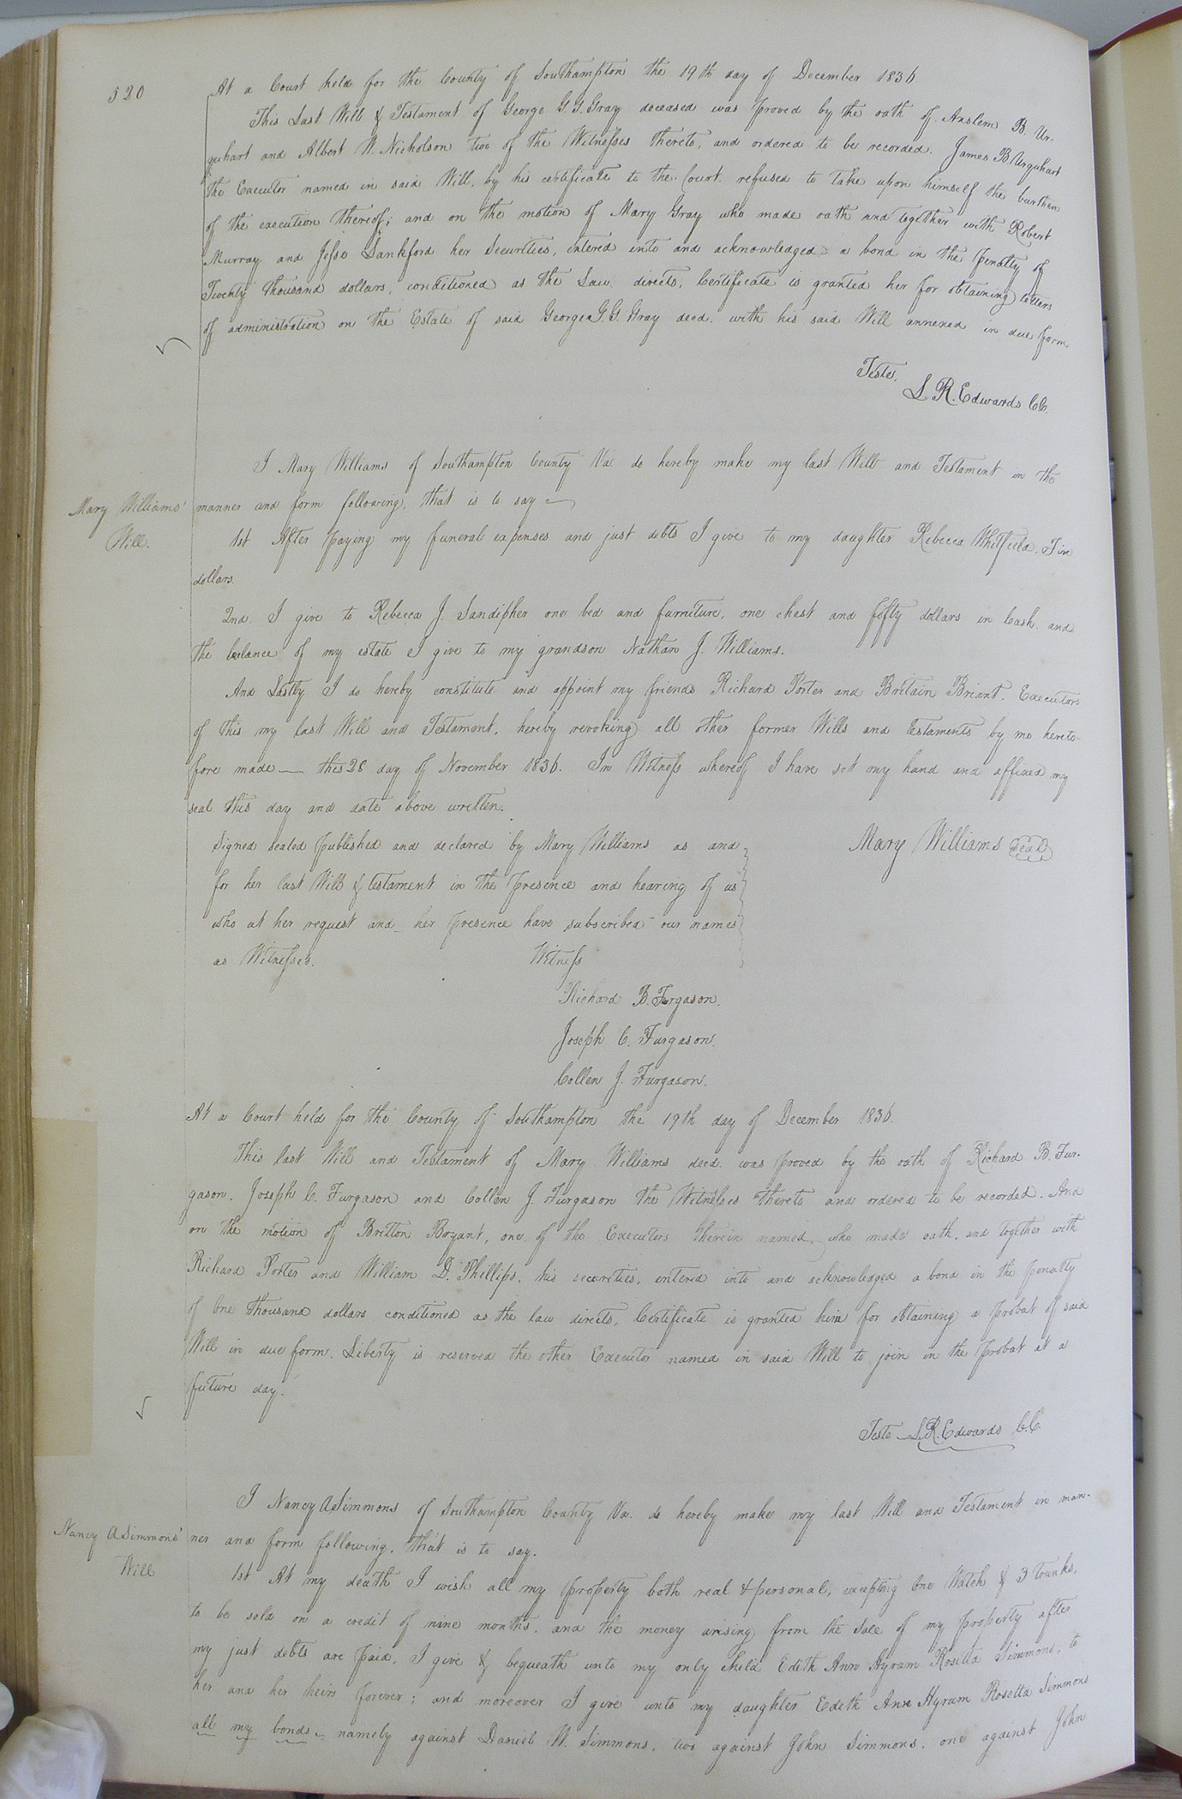 520
At a Court held for the County of Southampton the 19th day of December 1836
This Last Will & Testament of George G. G. Gray deceased was proved by the oath of Anslem B. Ur-
quhart and Albert W. Nicholson two of the Witnesses thereto, and ordered to be recorded. James B Urquhart
the Executor named in said Will, by his certificate to the Court refused to take upon himself the burthen
of the execution thereof; and on the motion of Mary Gray who made oath and together with Robert
Murray and Jesse Lankford her securities, entered into and acknowledged a bond in the penalty of
Twenty thousand dollars, conditioned as the Law directs, Certificate is granted her for obtaining letters
of administration on the Estate of said George G. G. Gray decd. with his said Will annexed in due form
Teste,
L. R. Edwards CC.
Mary Williams'
Will.
I Mary Williams of Southampton County Va do hereby make my last Will and Testament in the
manner and form following, that is to say
1st After paying my funeral expenses and just debts I give to my daughter Rebecca Whitfield, Five
dollars.
2nd. I give to Rebecca J. Sandipher one bed and furniture, one chest and fifty dollars in Cash, and
the balance of my estate I give to my grandson Nathan J. Williams.
And Lastly I do hereby constitute and appoint my friends Richard Porter and Britain Briant, Executors
of this my last Will and Testament, hereby revoking all other former Wills and testaments by me hereto-
fore made — this 28 day of November 1836. In Witness whereof I have set my hand and affixed my
seal this day and date above written.
Mary Williams Seal
Signed sealed published and declared by Mary Williams as and
for her last Will & testament in the presence and hearing of us
who at her request and her presence have subscribed our names
as Witnesses. Witness
Richard B. Furgason.
Joseph C. Furgason.
Collen J. Furgason.
At a Court held for the County of Southampton the 19th day of December 1836.
This last Will and Testament of Mary Williams decd. was proved by the oath of Richard B. Fur-
gason, Joseph C. Furgason and Collen J. Furgason the Witnesses thereto and ordered to be recorded. And
on the motion of Britton Bryant, one of the Executors therein named, who made oath, and together with
Richard Porter and William D. Phillips, his securities, entered into and acknowledged a bond in the penalty
of One thousand dollars conditioned as the law directs, Certificate is granted him for obtaining a probat of said
Will in due form. Liberty is reserved the other Executor named in said Will to join in the probat at a
future day.
Teste L. R. Edwards C.C.
Nancy A Simmons'
Will
I Nancy A Simmons of Southampton County Va. do hereby make my last Will and Testament in man-
ner and form following, that is to say.
1st At my death I wish all my property both real & personal, excepting One Watch & 3 trunks,
to be sold on a credit of nine months, and the money arising from the sale of my property after
my just debts are paid, I give & bequeath unto my only child Edith Ann Hyram Rosetta Simmons, to
her and her heirs forever; and moreover I give unto my daughter Edith Ann Hyram Rosetta Simmons
all my bonds, namely against Daniel W. Simmons, two against John Simmons, one against John